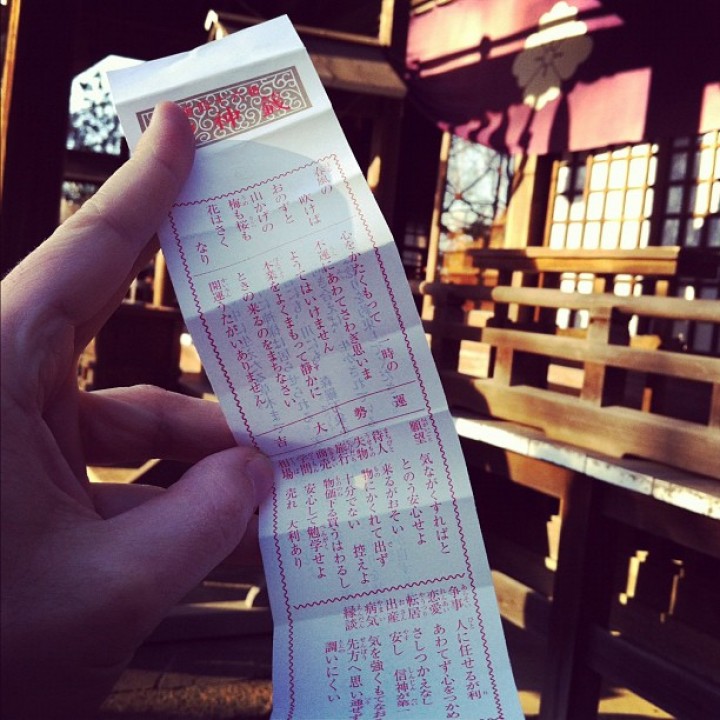 神籤
春風の 吹けば
おのずと
山かげの
梅も桜も
花はさく
なり
心をかたくもって 一時の
不運にあわてさわぎ思いま
ようてはいけません
本業をよくまもって静かに
ときの来るのをまちなさい
開運うたがいありません
運
勢
大
吉
願望 気ながくすればと
とのう安心せよ
待人 来るがおそい
失物 物にかくれて出ず
旅行 十分でない 控えよ
商売 物価下る買うはわるし
学問 安心して勉学せよ
相場 売れ 大利あり
争事 人に任せるが利
恋愛 あわてず心をつかめ
転居 さしつかえなし
出産 安し 信神が第一
病気 気を強くもてなお
縁談 先方へ思い通ぜず
調いにくい